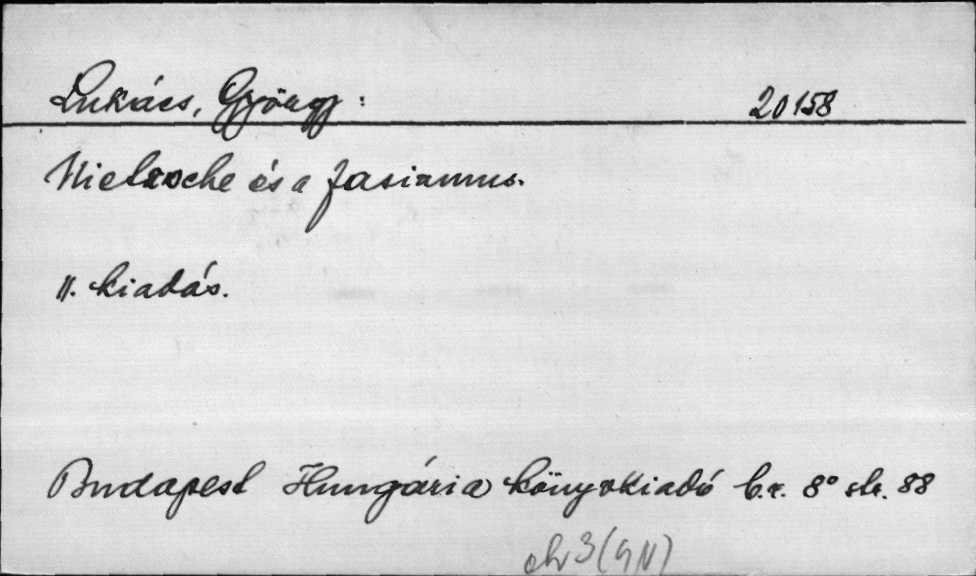 Lukács, György: 20158
Nietzsche és a fasizmus.
II. kiadás.
Budapest Hungária könyvkiadó b.r. 8° str. 88